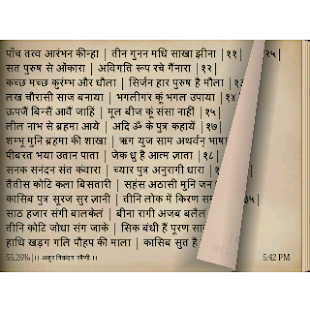 पाँच तत्व आरंभन कीन्हा | तीन गुनन मधि साखा झीना |११|
सत पुरुष से ओंकारा | अविगति रूप रचे गैंनारा |१२|
कच्छ मच्छ कुरंभ और धौला | सिर्जन हार पुरुष है मौला |१३
लख चौरासी साज बनाया | भगलीगर कूं भगल उपाया |१४
ऊपजैं बिन्सैं आवैं जाहिं | मूल बीज कूं संसा नाहीं |१५
लील नाभ से ब्रहमा आये | आदि ॐ के पुत्र कहायें |१७|
शम्भू मुनि ब्रहमा की शाखा | ऋग युज साम अथर्वन् भाषा
पीबरत भया उतान पाता | जेक ध्रु है आत्म ज्ञाता |१८|
सनक सनंदन संत कंवारा | च्यार पुत्र अनुरागी धारा |
तैंतीस कोटि कला बिसतारी | सहंस अठासी मुनि जन
कासिब पुत्र सूरज सुर ज्ञानी | तीनि लोक में किरण
साठ हजार संगी बालकेलं | बीना रागी अजब बलेलं
तीनि कोटि जोधा संग जाके | सिक बंधी हैं पूरण
हाथि खड़ग गलि पौहप की माला | कासिब सुत है
55.26% || असुर निकंदन रमैणी || 5:42 PM